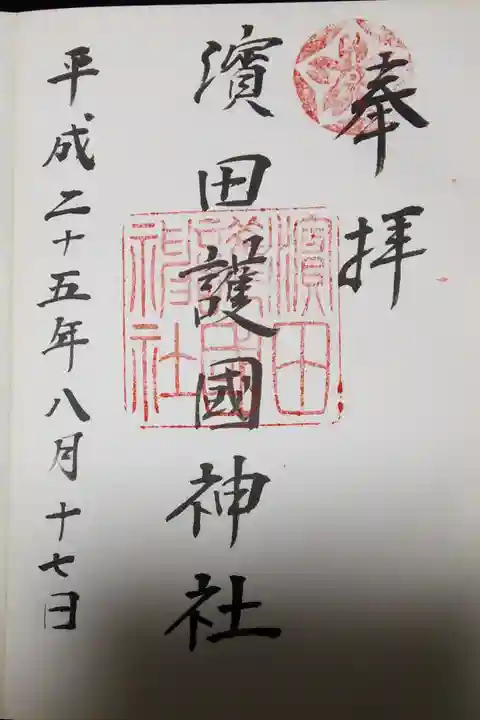 奉拝
濱田護國神社
濱田
護國
神社
平成二十五年八月十七日